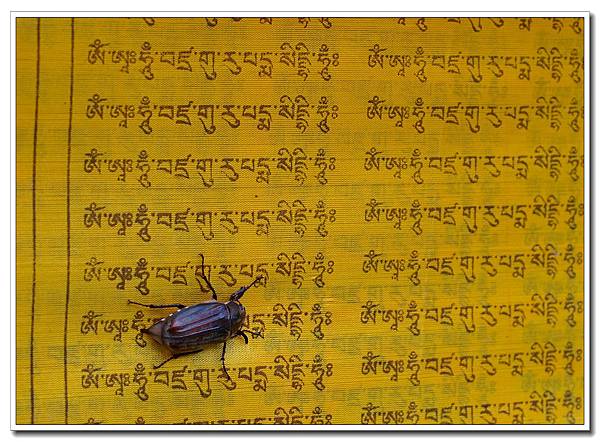 ཨོཾ་ཨཱཿཧཱུྃ་བཛྲ་གུ་རུ་པདྨ་སིདྡྷི་ཧཱུྃ༔ ཨོཾ་ཨཱཿཧཱུྃ་བཛྲ་གུ་རུ་པདྨ་སིདྡྷི་ཧཱུྃ༔
ཨོཾ་ཨཱཿཧཱུྃ་བཛྲ་གུ་རུ་པདྨ་སིདྡྷི་ཧཱུྃ༔ ཨོཾ་ཨཱཿཧཱུྃ་བཛྲ་གུ་རུ་པདྨ་སིདྡྷི་ཧཱུྃ༔
ཨོཾ་ཨཱཿཧཱུྃ་བཛྲ་གུ་རུ་པདྨ་སིདྡྷི་ཧཱུྃ༔ ཨོཾ་ཨཱཿཧཱུྃ་བཛྲ་གུ་རུ་པདྨ་སིདྡྷི་ཧཱུྃ༔
ཨོཾ་ཨཱཿཧཱུྃ་བཛྲ་གུ་རུ་པདྨ་སིདྡྷི་ཧཱུྃ༔ ཨོཾ་ཨཱཿཧཱུྃ་བཛྲ་གུ་རུ་པདྨ་སིདྡྷི་ཧཱུྃ༔
ཨོཾ་ཨཱཿཧཱུྃ་བཛྲ་གུ་རུ་པདྨ་སིདྡྷི་ཧཱུྃ༔ ཨོཾ་ཨཱཿཧཱུྃ་བཛྲ་གུ་རུ་པདྨ་སིདྡྷི་ཧཱུྃ༔
ཨོཾ་ཨཱཿཧཱུྃ་ སིདྡྷི་ཧཱུྃ༔ ཨོཾ་ཨཱཿཧཱུྃ་བཛྲ་གུ་རུ་པདྨ་སིདྡྷི་ཧཱུྃ༔
ཨོཾ་ཨཱཿཧཱུྃ་བཛྲ་གུ་རུ་པདྨ་སིདྡྷི་ཧཱུྃ༔ ཨོཾ་ཨཱཿཧཱུྃ་བཛྲ་གུ་རུ་པདྨ་སིདྡྷི་ཧཱུྃ༔